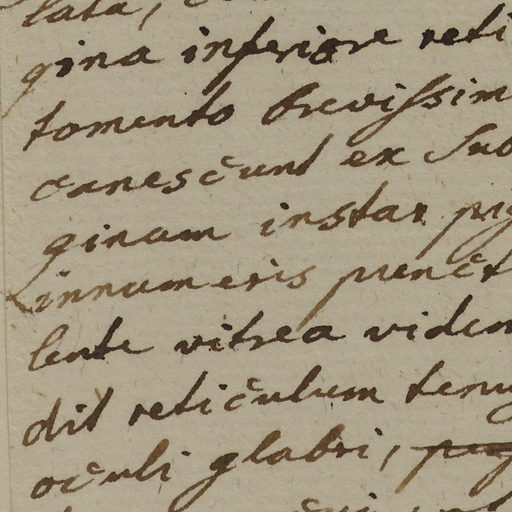 lata,
gina inferiore reti
tomento brevissim
canescunt ex suo
ginam instar pig
innumeris punct
lente vitrea viden
dit reticulum tenu
oculi glabri,